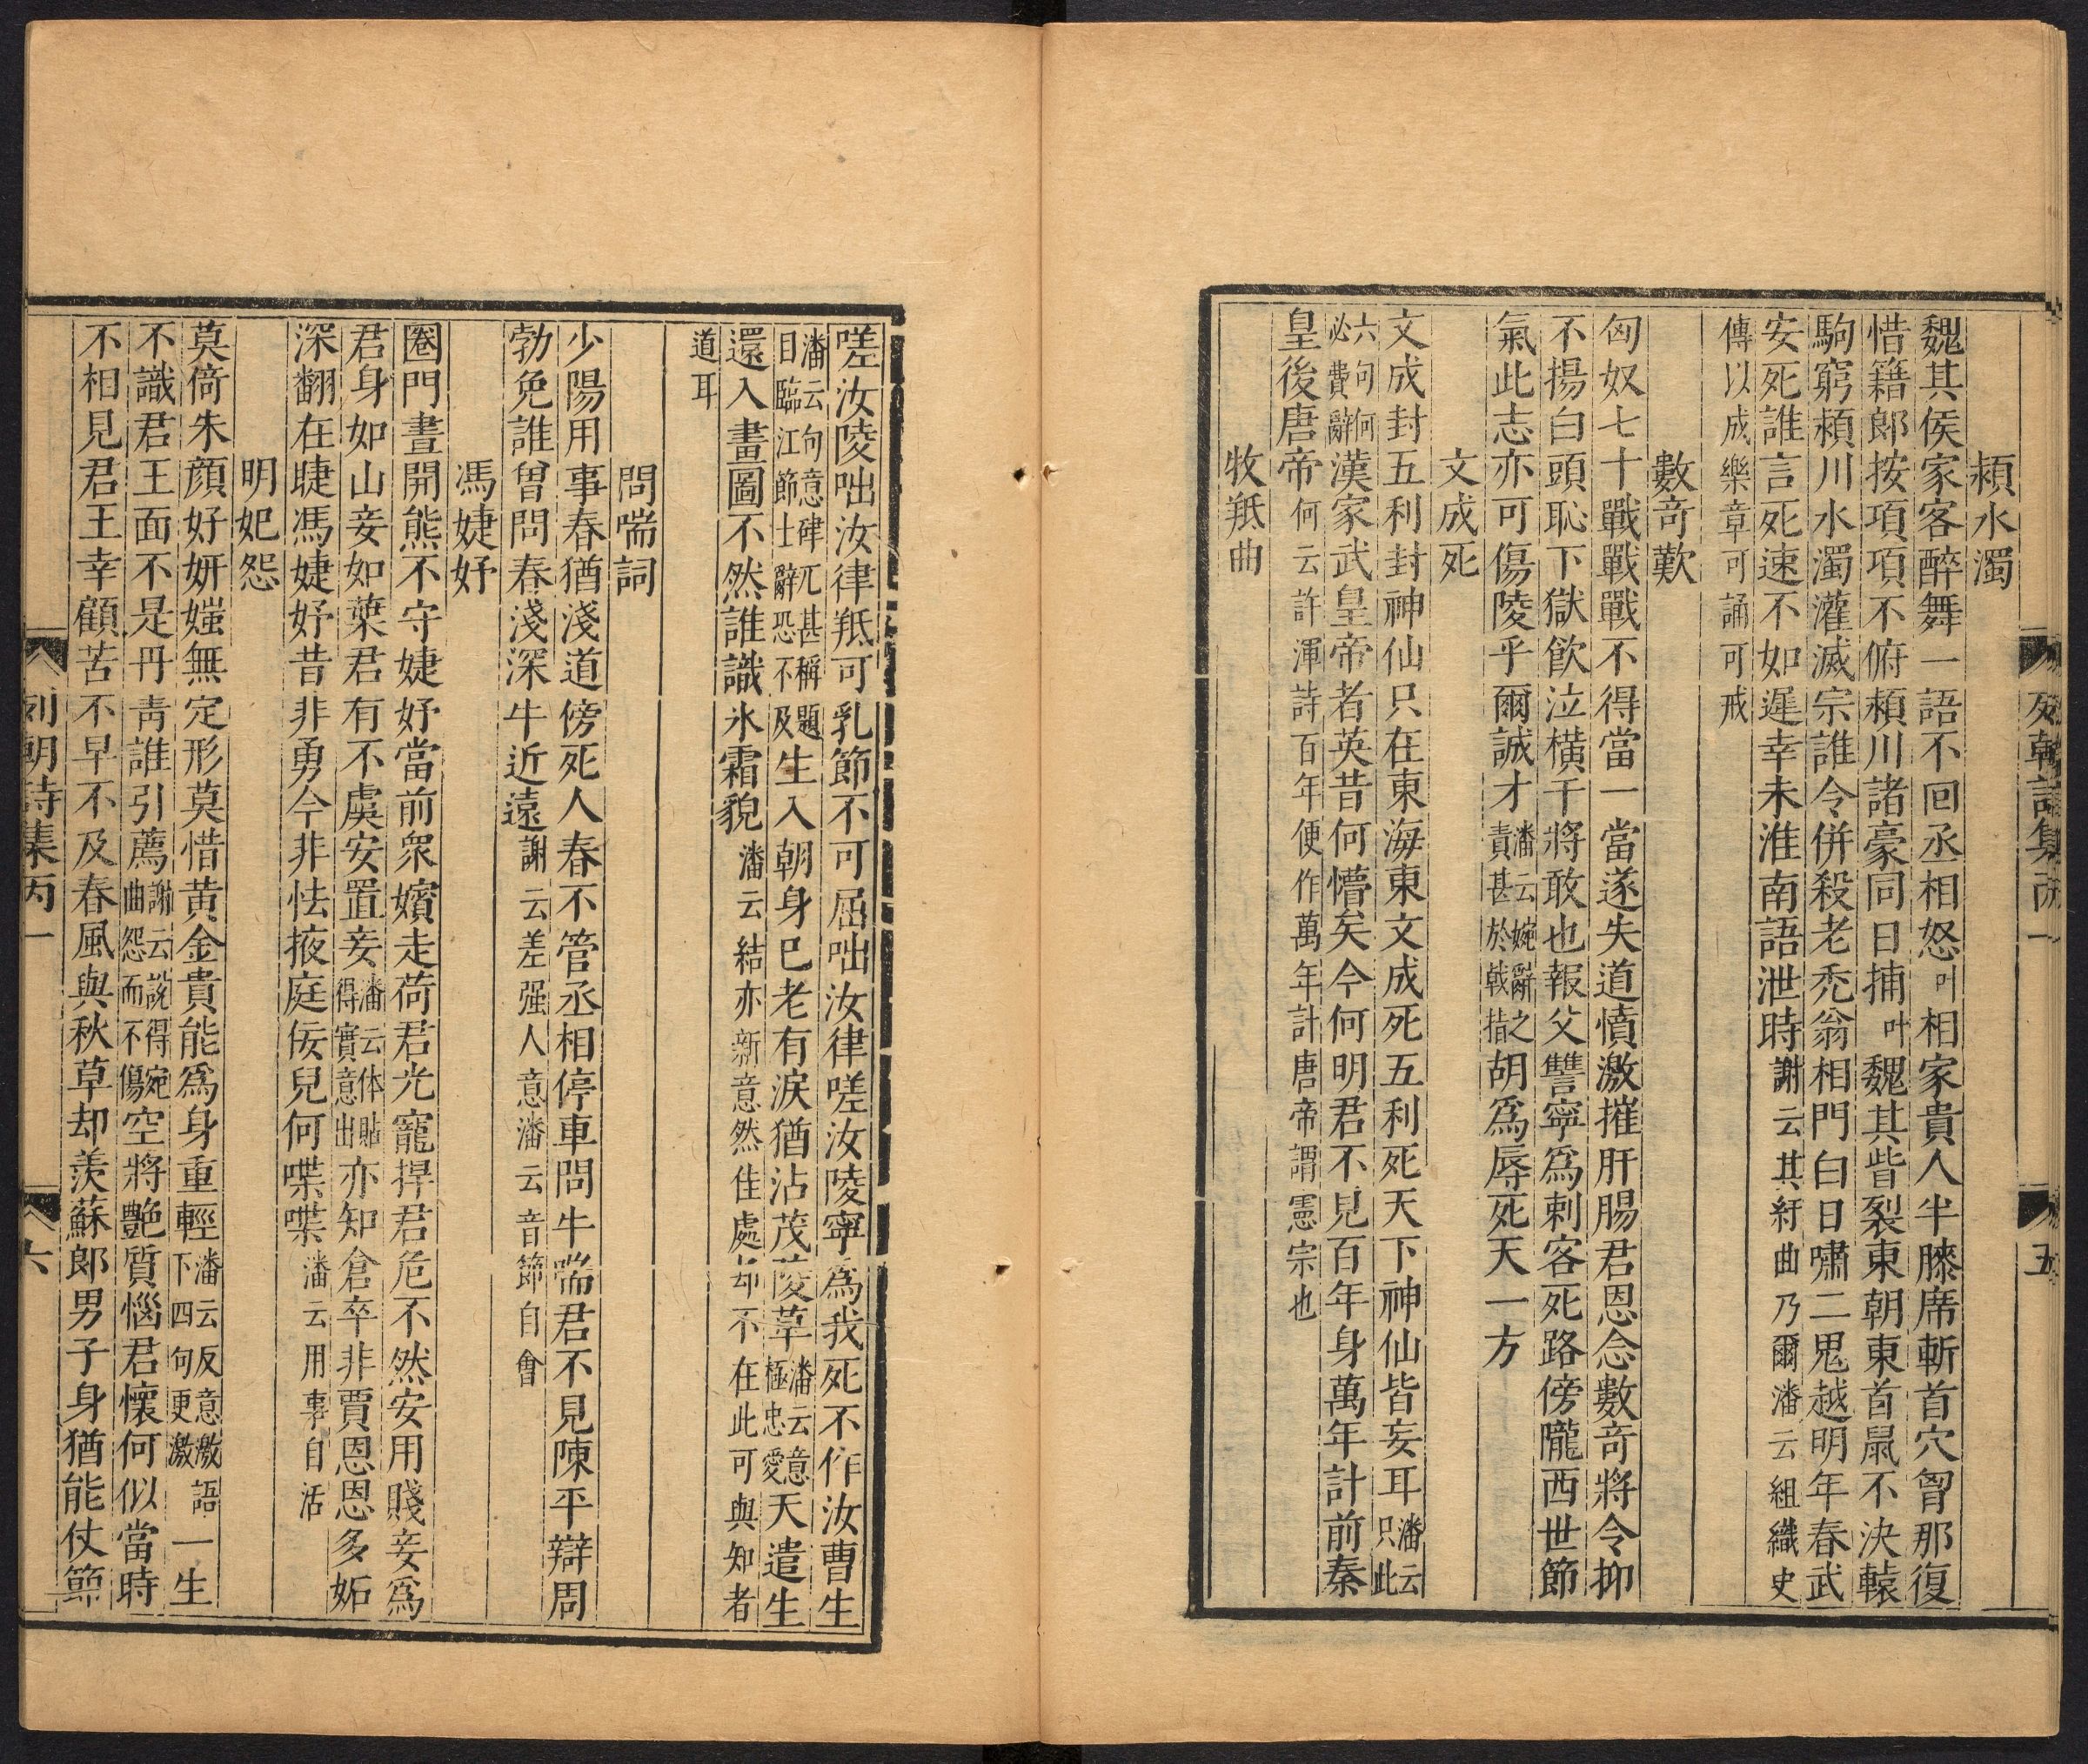 列朝詩集丙一
五
潁水濁
魏其侯家客醉舞一語不回丞相怒叶相家貴人半膝席斬首穴胷那復
惜籍郎按項項不俯潁川諸豪同日捕叶魏其眥裂東朝東首鼠不決轅
駒窮潁川水濁灌滅宗誰令併殺老禿翁相門白日嘯二鬼越明年春武
安死誰言死速不如遲幸未淮南語泄時謝云其紆曲乃爾潘云組織史
傳以成樂章可誦可戒
數竒歎
匈奴七十戰戰戰不得當一當遂失道憤激摧肝腸君恩念數竒將令抑
不揚白頭恥下獄飲泣橫干將敢也報父讐寧爲刺客死路傍隴西世節
氣此志亦可傷陵乎爾誠才潘云婉辭之責甚於戟指胡爲辱死天一方
文成死
文成封五利封神仙只在東海東文成死五利死天下神仙皆妄耳潘云只此
六句何必費辭漢家武皇帝者英昔何懵矣今何明君不見百年身萬年計前秦
皇後唐帝何云許渾詩百年便作萬年計唐帝謂憲宗也
牧羝曲
嗟汝陵咄汝律羝可乳節不可屈咄汝律嗟汝陵寧爲我死不作汝曹生
潘云句意硉兀甚稱題目臨江節士辭恐不及生入朝身已老有淚猶沾茂陵草潘云意極忠愛天遣生
還入畫圖不然誰識氷霜貌潘云結亦新意然佳處却不在此可與知者
道耳
問喘詞
少陽用事春猶淺道傍死人春不管丞相停車問牛喘君不見陳平辯周
勃免誰曾問春淺深牛近遠謝云差强人意潘云音節自會
馮婕妤
圈門晝開熊不守婕妤當前衆嬪走荷君光寵捍君危不然安用賤妾爲
君身如山妾如葉君有不虞安置妾潘云体貼得實意出亦知倉卒非賈恩恩多妬
深翻在睫馮婕妤昔非勇今非怯掖庭佞兒何喋喋潘云用事自活
明妃怨
莫倚朱顔好妍媸無定形莫惜黄金貴能爲身重輕潘云反意激語下四句更激一生
不識君王面不是丹青誰引薦謝云說得宛曲怨而不傷空將艶質惱君懷何似當時
不相見君王幸顧苦不早不及春風與秋草却羨蘇郎男子身猶能仗節
列朝詩集丙一
六